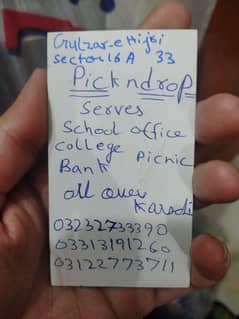 Gulzar-e Hijri
Sector 16 A 33
Pick n drop
Serves
School office
college picnic
Bank
all over
Karachi
03232733390
03313191260
03122773711